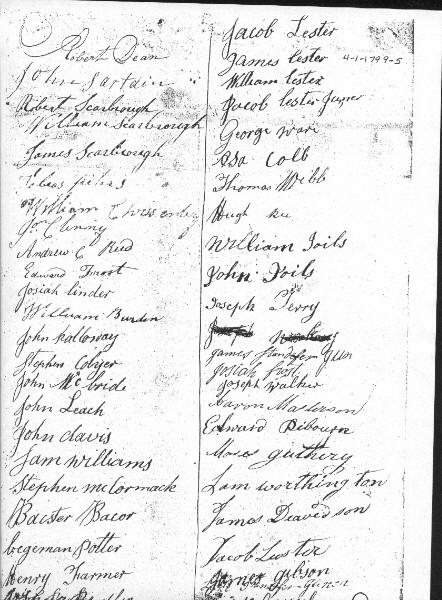 Robert Dean
John Sartain
Robert Scarbrough
William Scarbrough
James Scarbrough
William
Jas Clenny
Andrew C Reed
Edward Frost
Josiah linder
William Burden
John halloway
Stephen Colyer
John McBride
John Leach
John davis
Sam williams
Stephen mcCormack
Baester Bacor
hegeman Potter
Henry Farmer
Jacob Lester
James Lester 4-1-1799-5
William Lester
Jacob Lester Juner
George ware
Asa Cobb
Thomas Webb
Hugh
William Soils
John Soils
Joseph Terry
James Standefer
Josiah frost
Joseph walker
Aaron Masterson
Edward Ribourn
Moses guthery
Sam worthington
James Deavidson
Jacob Luster
James gibson